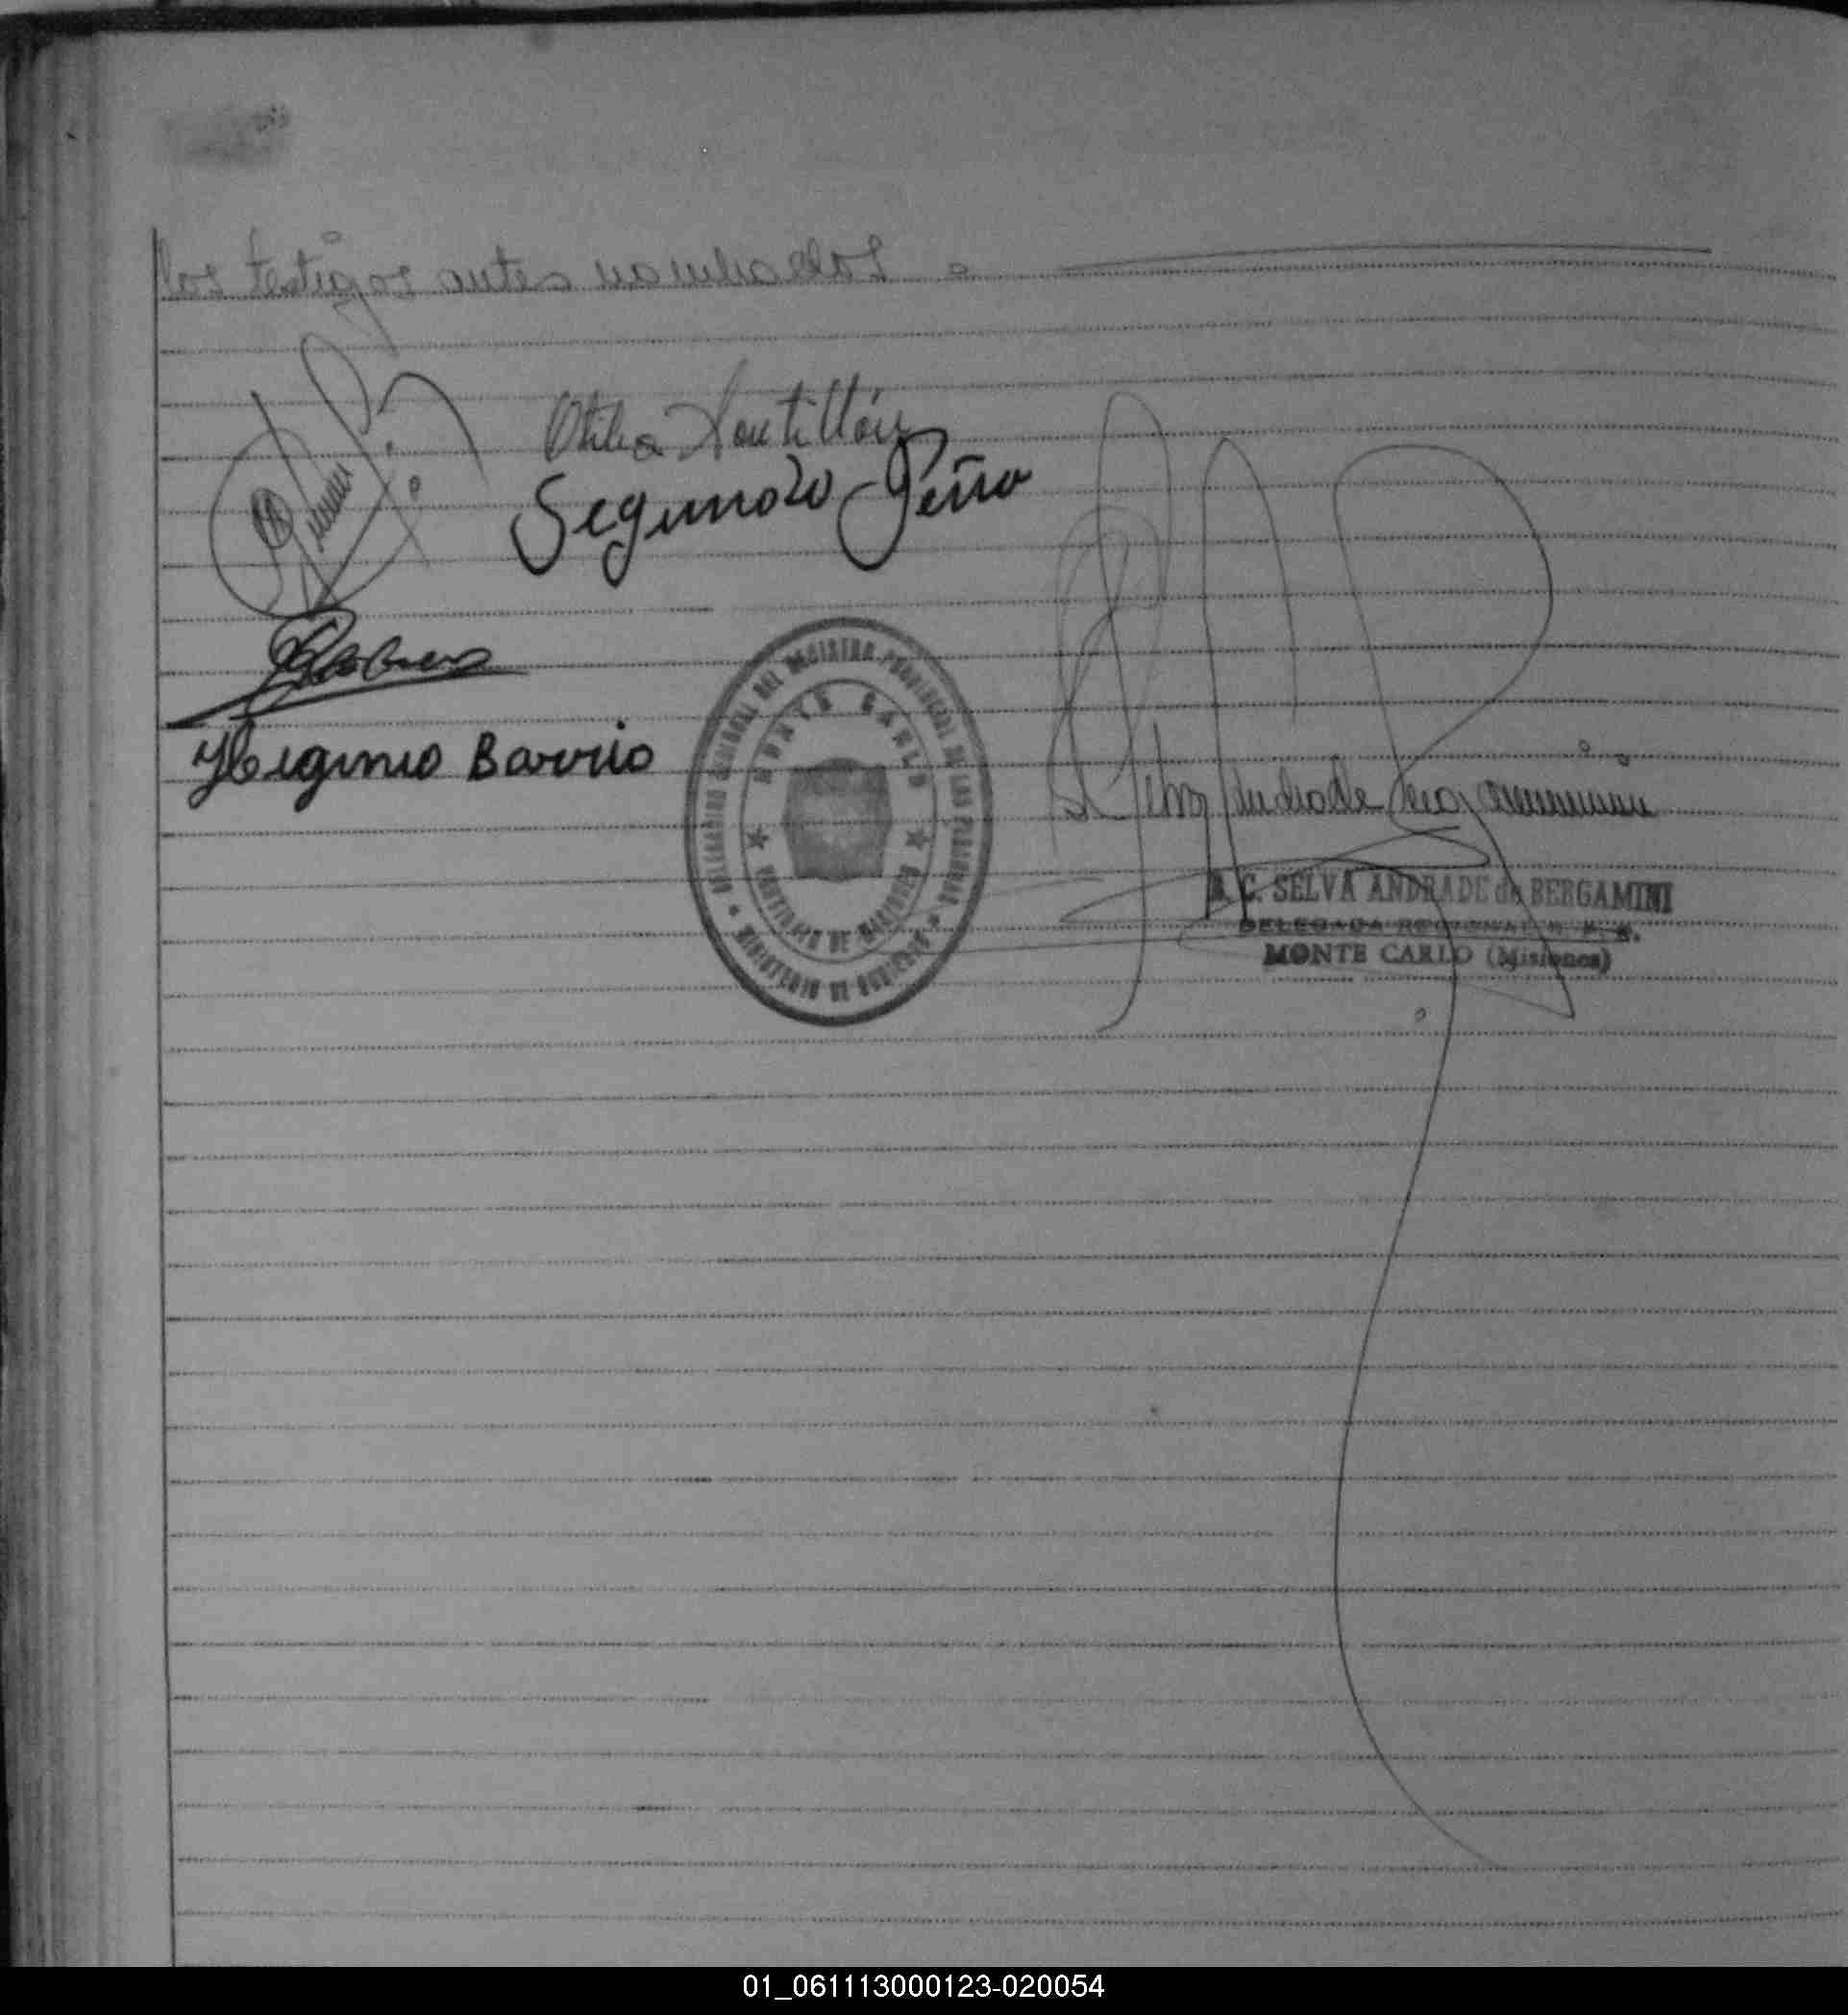 los testigos antes nombrados.
Otilia Santillán
Segundo Peña
Higinio Barrio
DELEGACION REGIONAL DEL REGISTRO PROVINCIAL DE LAS PERSONAS
MONTE CARLO
MINISTERIO DE GOBIERNO
Selva Andrade
S. C. SELVA ANDRADE de BERGAMINI
DELEGADA REGIONAL R. P. P.
MONTE CARLO (Misiones)
01_061113000123-020054